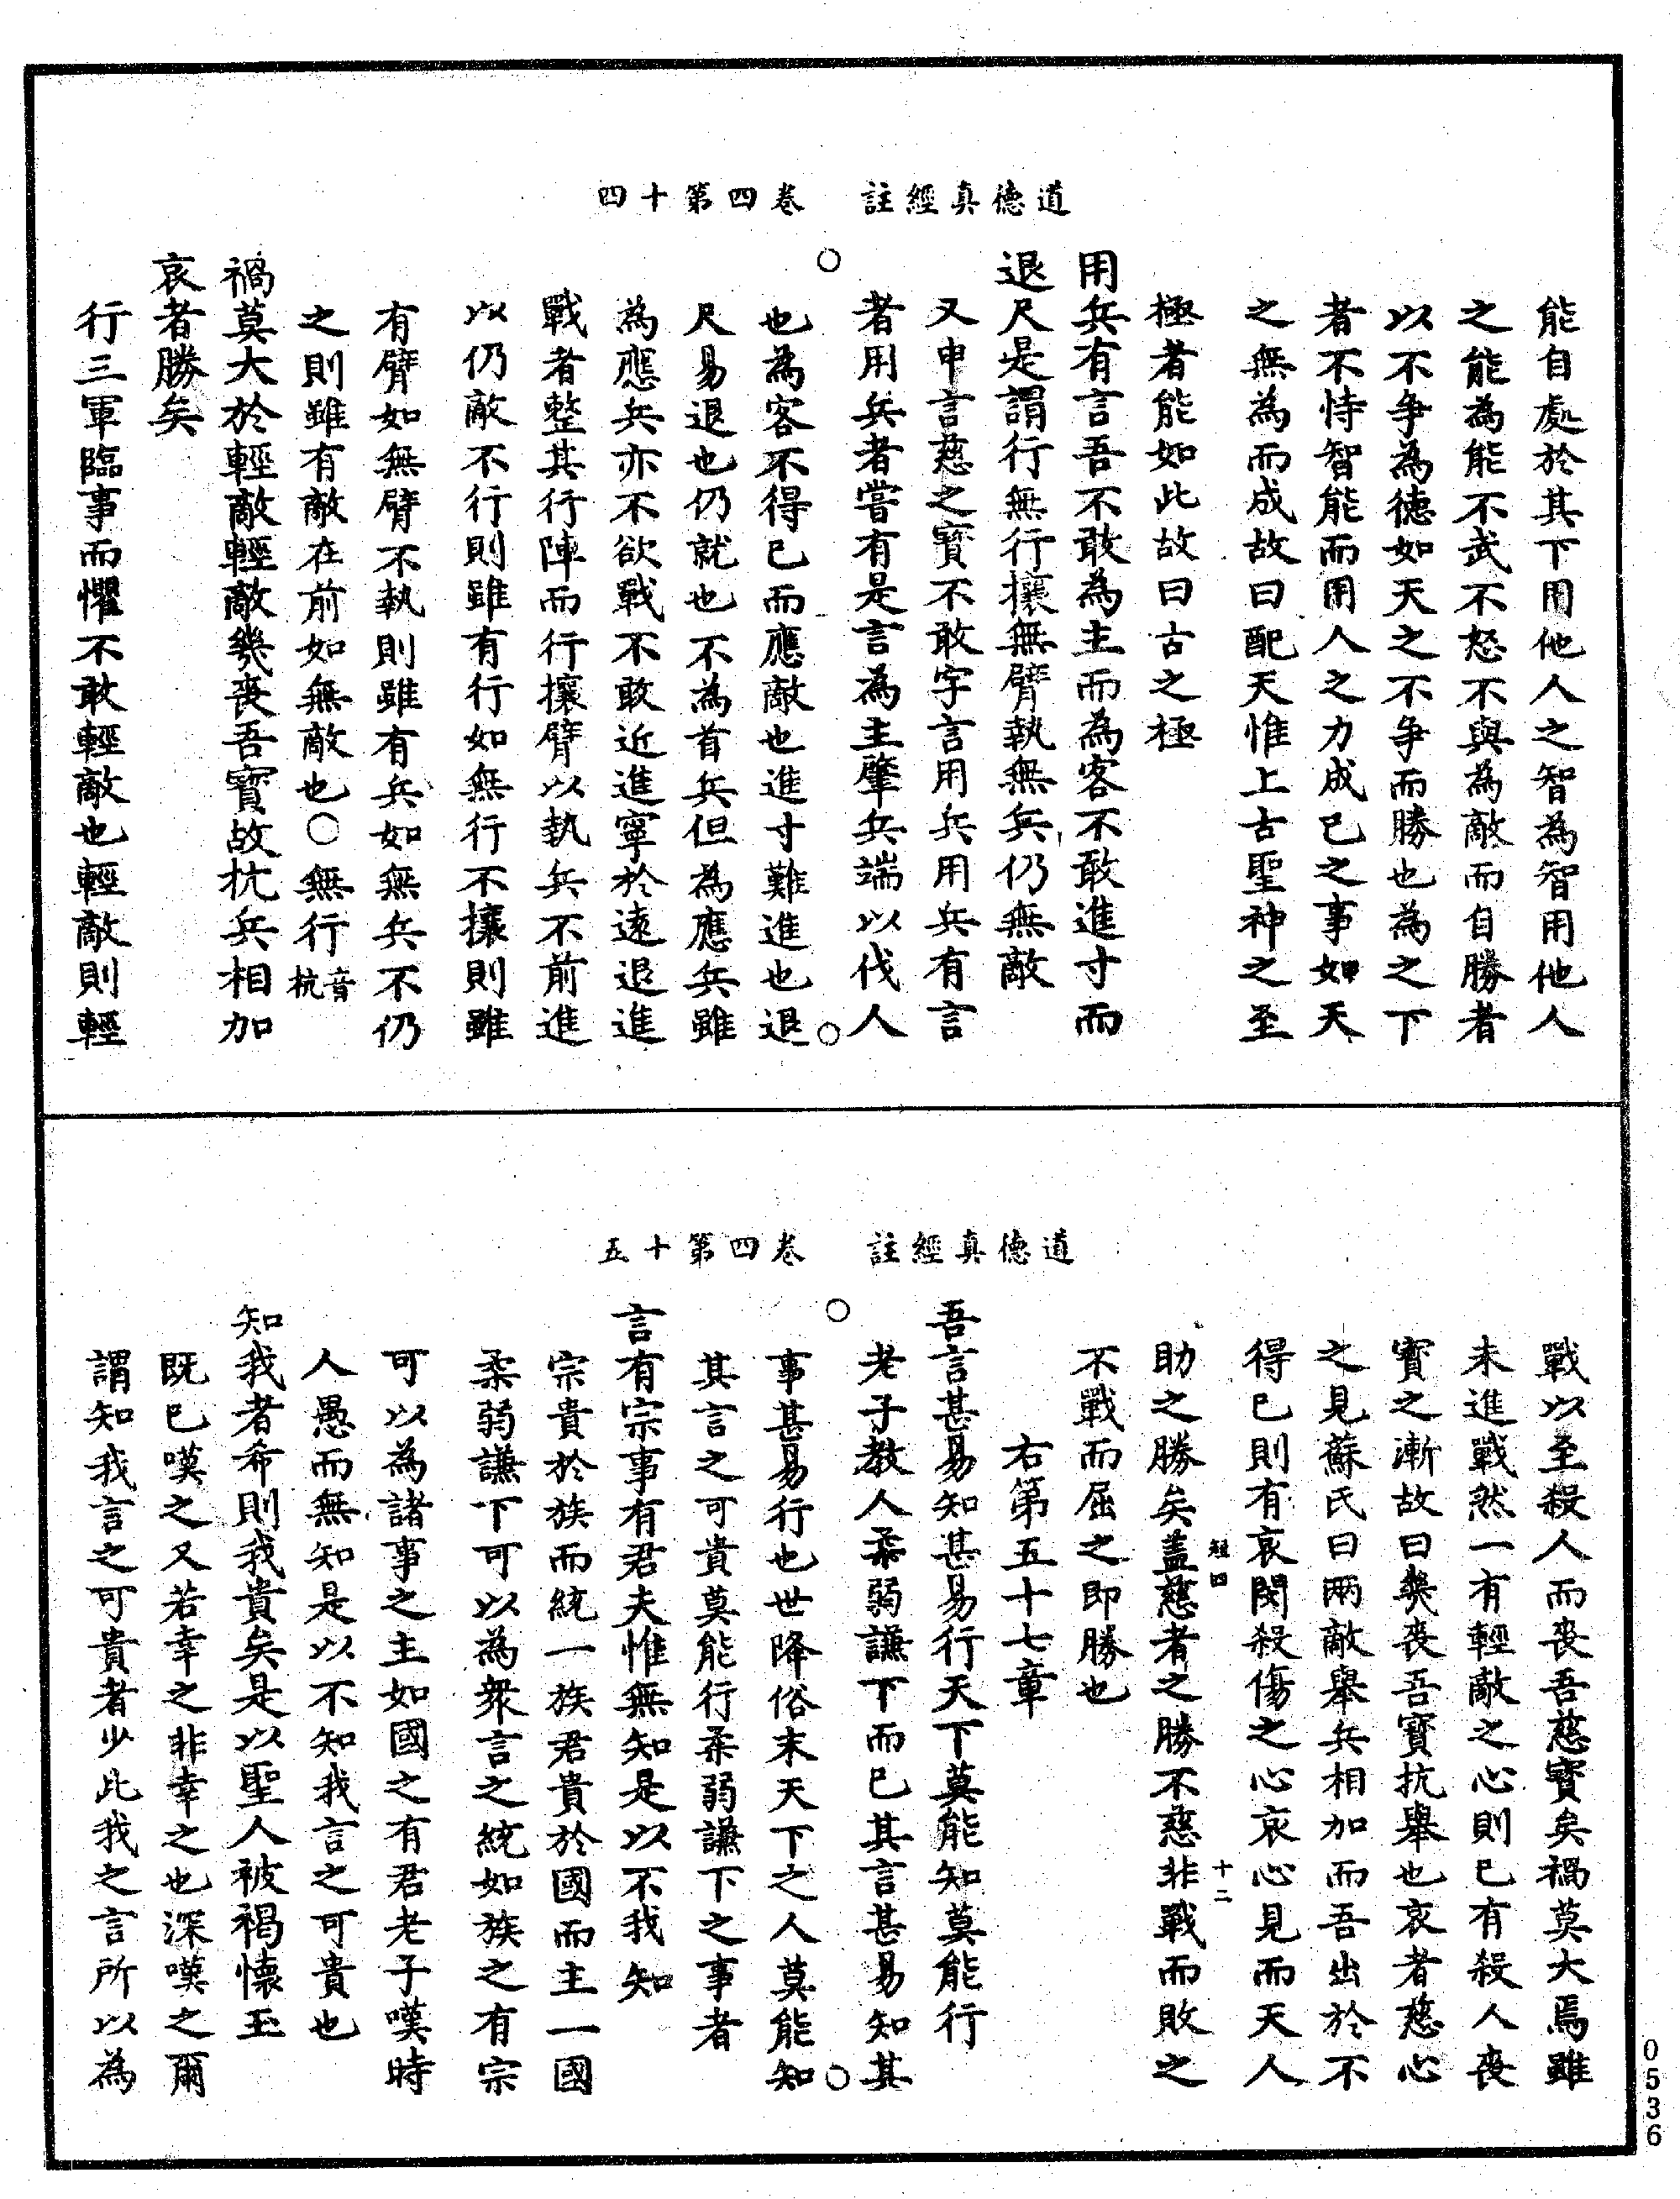 道德真經註　卷四第十四
能自處於其下用他人之智為智用他人
之能為能不武不怒不與為敵而自勝者
以不爭為德如天之不爭而勝也為之下
者不恃智能而用人之力成己之事如天
之無為而成故曰配天惟上古聖神之至
極者能如此故曰古之極
用兵有言吾不敢為主而為客不敢進寸而
退尺是謂行無行攘無臂執無兵仍無敵
又申言慈之寶不敢字言用兵用兵有言
者用兵者嘗有是言為主肇兵端以伐人
也為客不得已而應敵也進寸難進也退
尺易退也仍就也不為首兵但為應兵雖
為應兵亦不欲戰不敢近進寧於遠退進
戰者整其行陣而行攘臂以執兵不前進
以仍敵不行則雖有行如無行不攘則雖
有臂如無臂不執則雖有兵如無兵不仍
之則雖有敵在前如無敵也○無行音杭
禍莫大於輕敵輕敵幾喪吾寶故抗兵相加
哀者勝矣
行三軍臨事而懼不敢輕敵也輕敵則輕
道德真經註　卷四第十五
戰以至殺人而喪吾慈寶矣禍莫大焉雖
未進戰然一有輕敵之心則已有殺人喪
寶之漸故曰幾喪吾寶抗舉也哀者慈心
之見蘇氏曰兩敵舉兵相加而吾出於不
得已則有哀閔殺傷之心哀心見而天人
短四　十二
助之勝矣蓋慈者之勝不慈非戰而敗之
不戰而屈之即勝也
右第五十七章
吾言甚易知甚易行天下莫能知莫能行
老子教人柔弱謙下而已其言甚易知其
事甚易行也世降俗末天下之人莫能知
其言之可貴莫能行柔弱謙下之事者
言有宗事有君夫惟無知是以不我知
宗貴於族而統一族君貴於國而主一國
柔弱謙下可以為衆言之統如族之有宗
可以為諸事之主如國之有君老子嘆時
人愚而無知是以不知我言之可貴也
知我者希則我貴矣是以聖人被褐懷玉
既已嘆之又若幸之非幸之也深嘆之爾
謂知我言之可貴者少此我之言所以為
0536